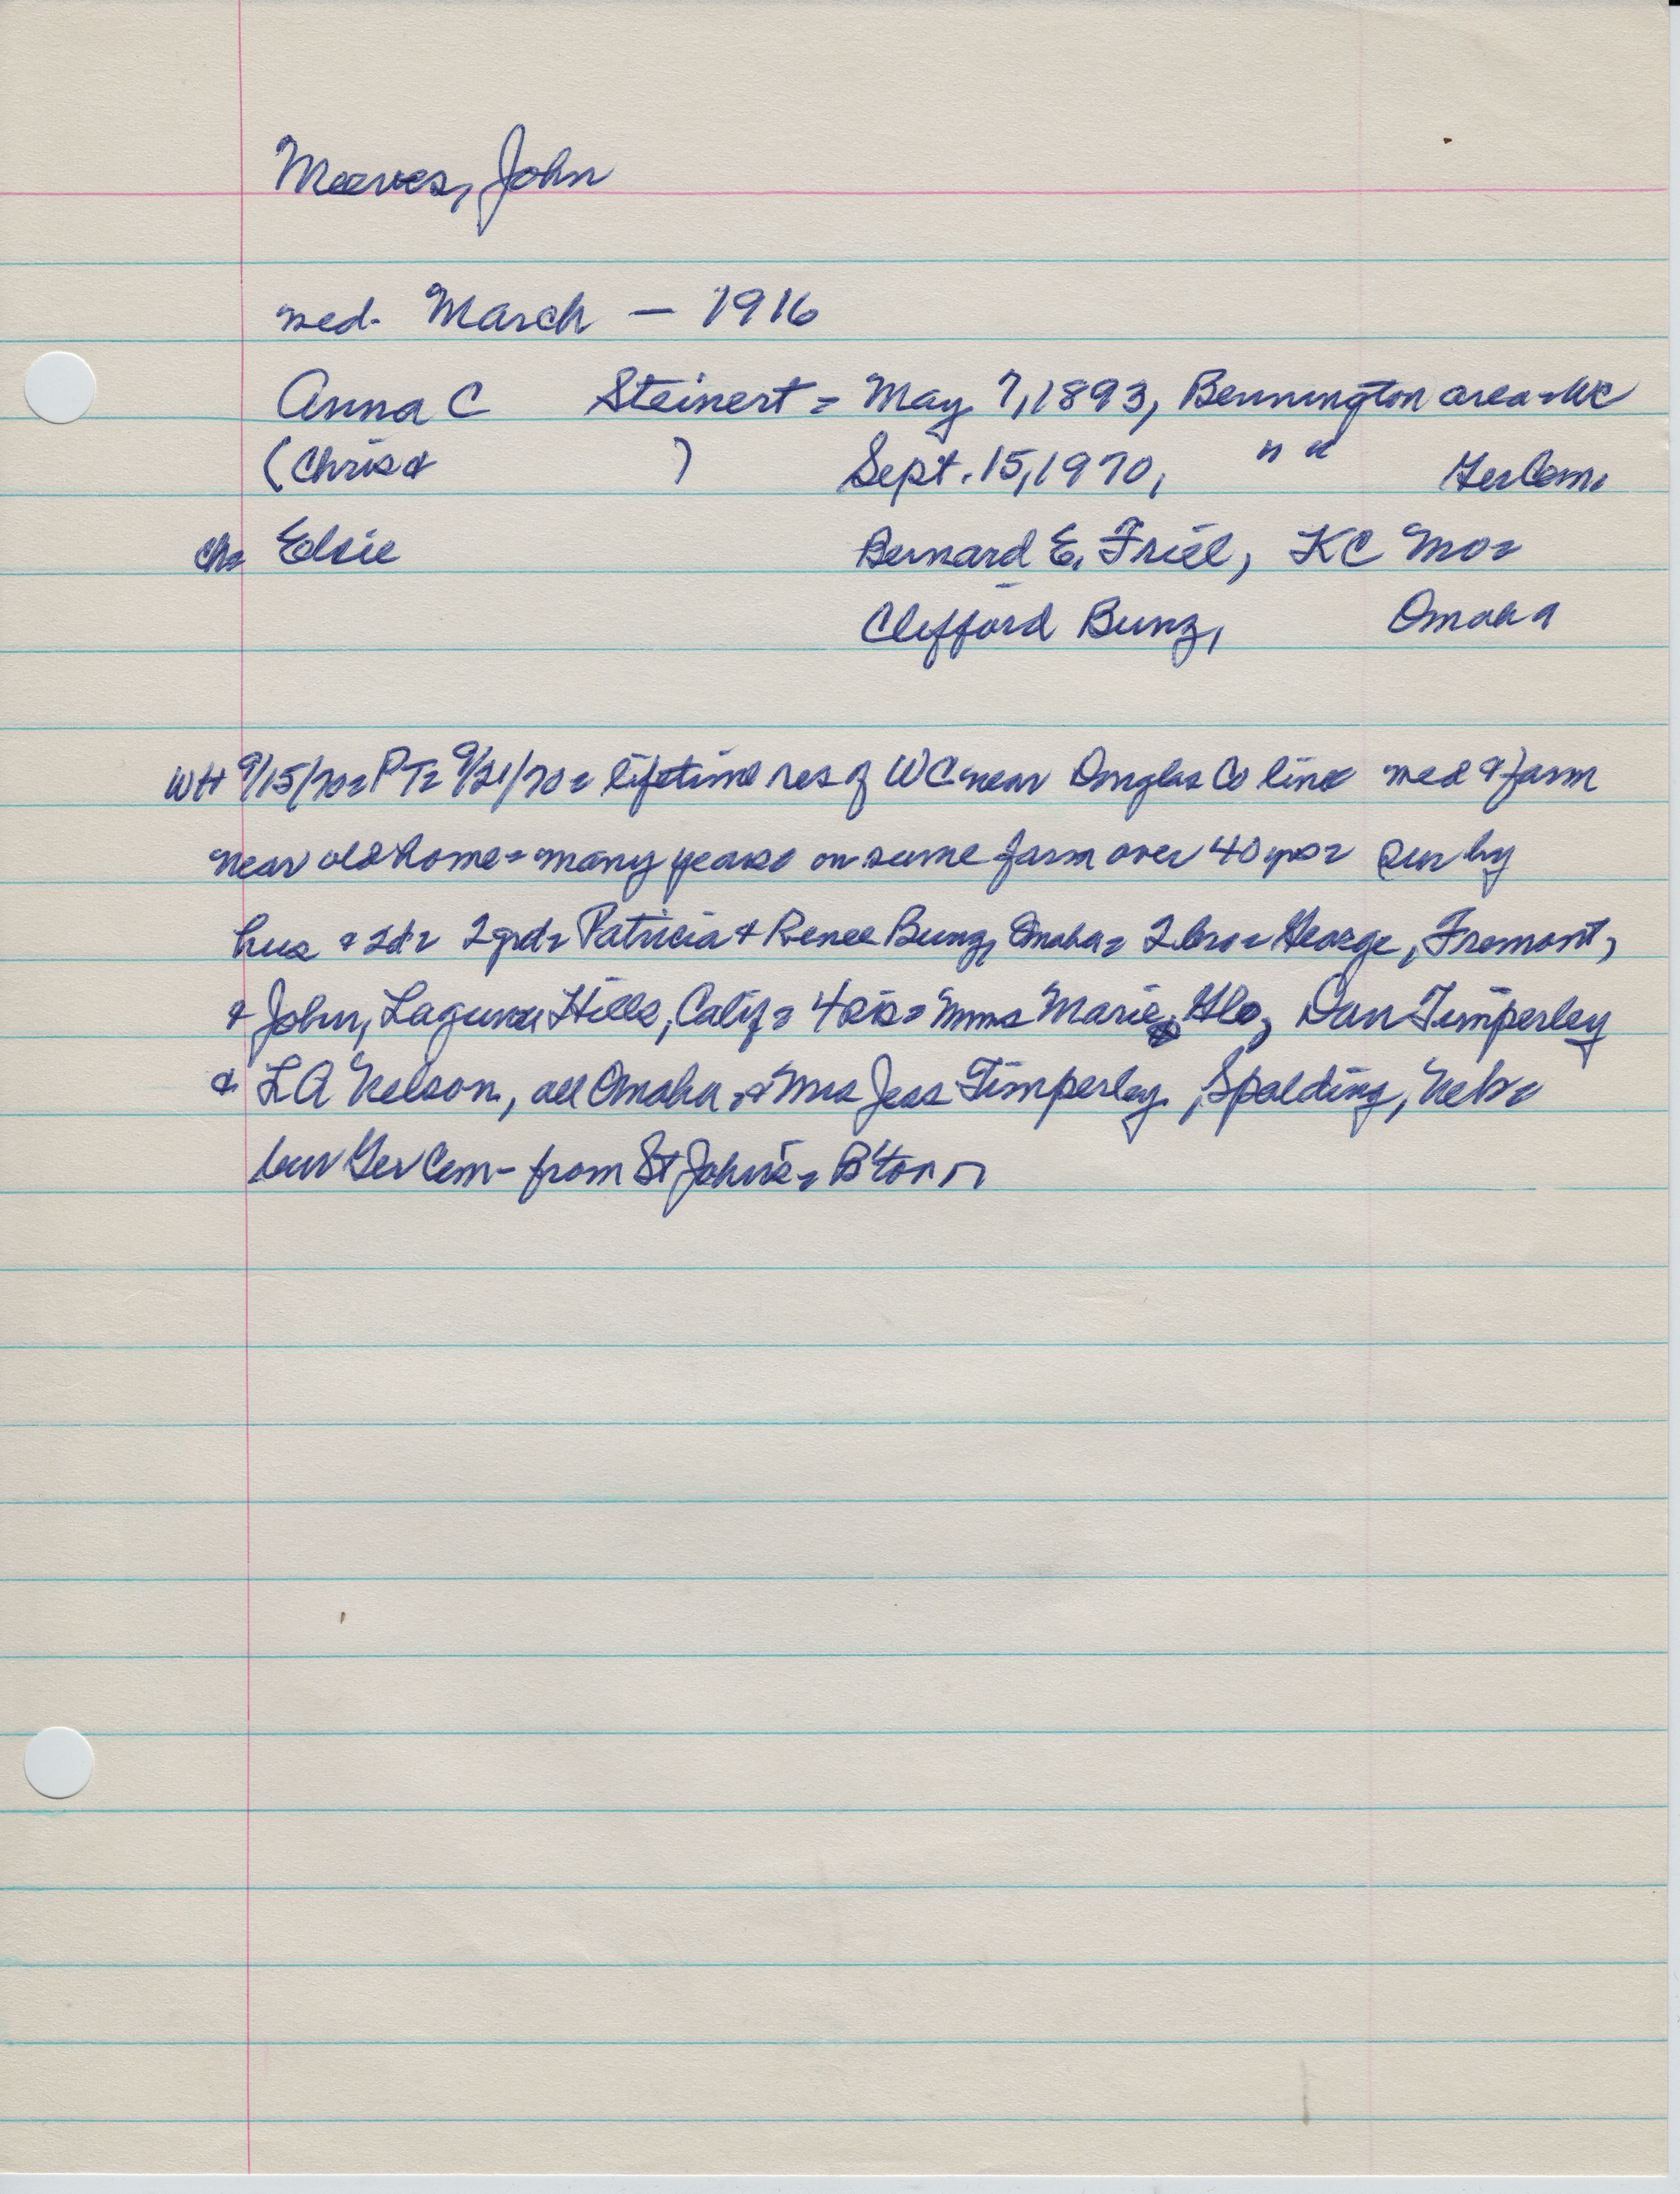 Meeves, John
wed. March — 1916
Anna C Steinert = May 7, 1893, Bennington area = WC
(Chris & ) Sept. 15, 1970, " " Ger Cem.
ch= Elsie Bernard E. Friel, KC Mo=
Clifford Bunz, Omaha
WH 9/15/70= PT= 9/21/70= lifetime res of WC near Douglas Co line wed & farm
near old home= many years on same farm over 40 yrs= sur by
hus & 2d= 2grd= Patricia & Renee Bunz, Omaha= 2 bro= George, Fremont,
& John, Laguna Hills, Calif= 4sis= Mmes Marie Glo, Dan Timperley
& LA Nelson, all Omaha, & Mrs Jess Timperley, Spalding, Neb=
bur Ger Cem- from St John's= B'ton